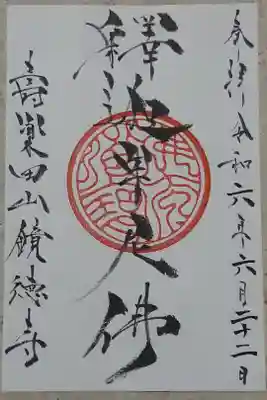 奉拝 令和六年六月二十二日
釋迦牟尼佛
壽田山鏡徳寺